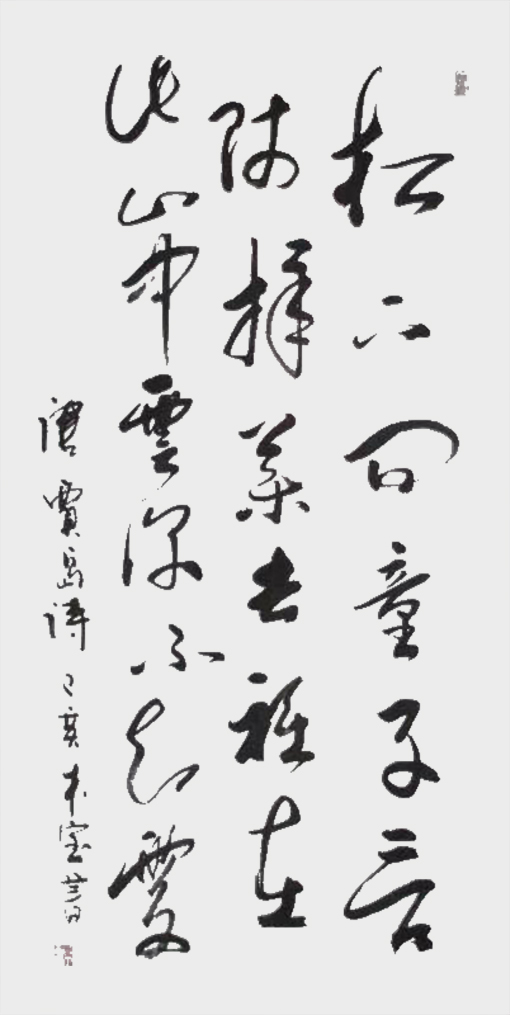 松下問童子言
師採藥去祇在
此山中雲深不知處
唐賈島詩己亥